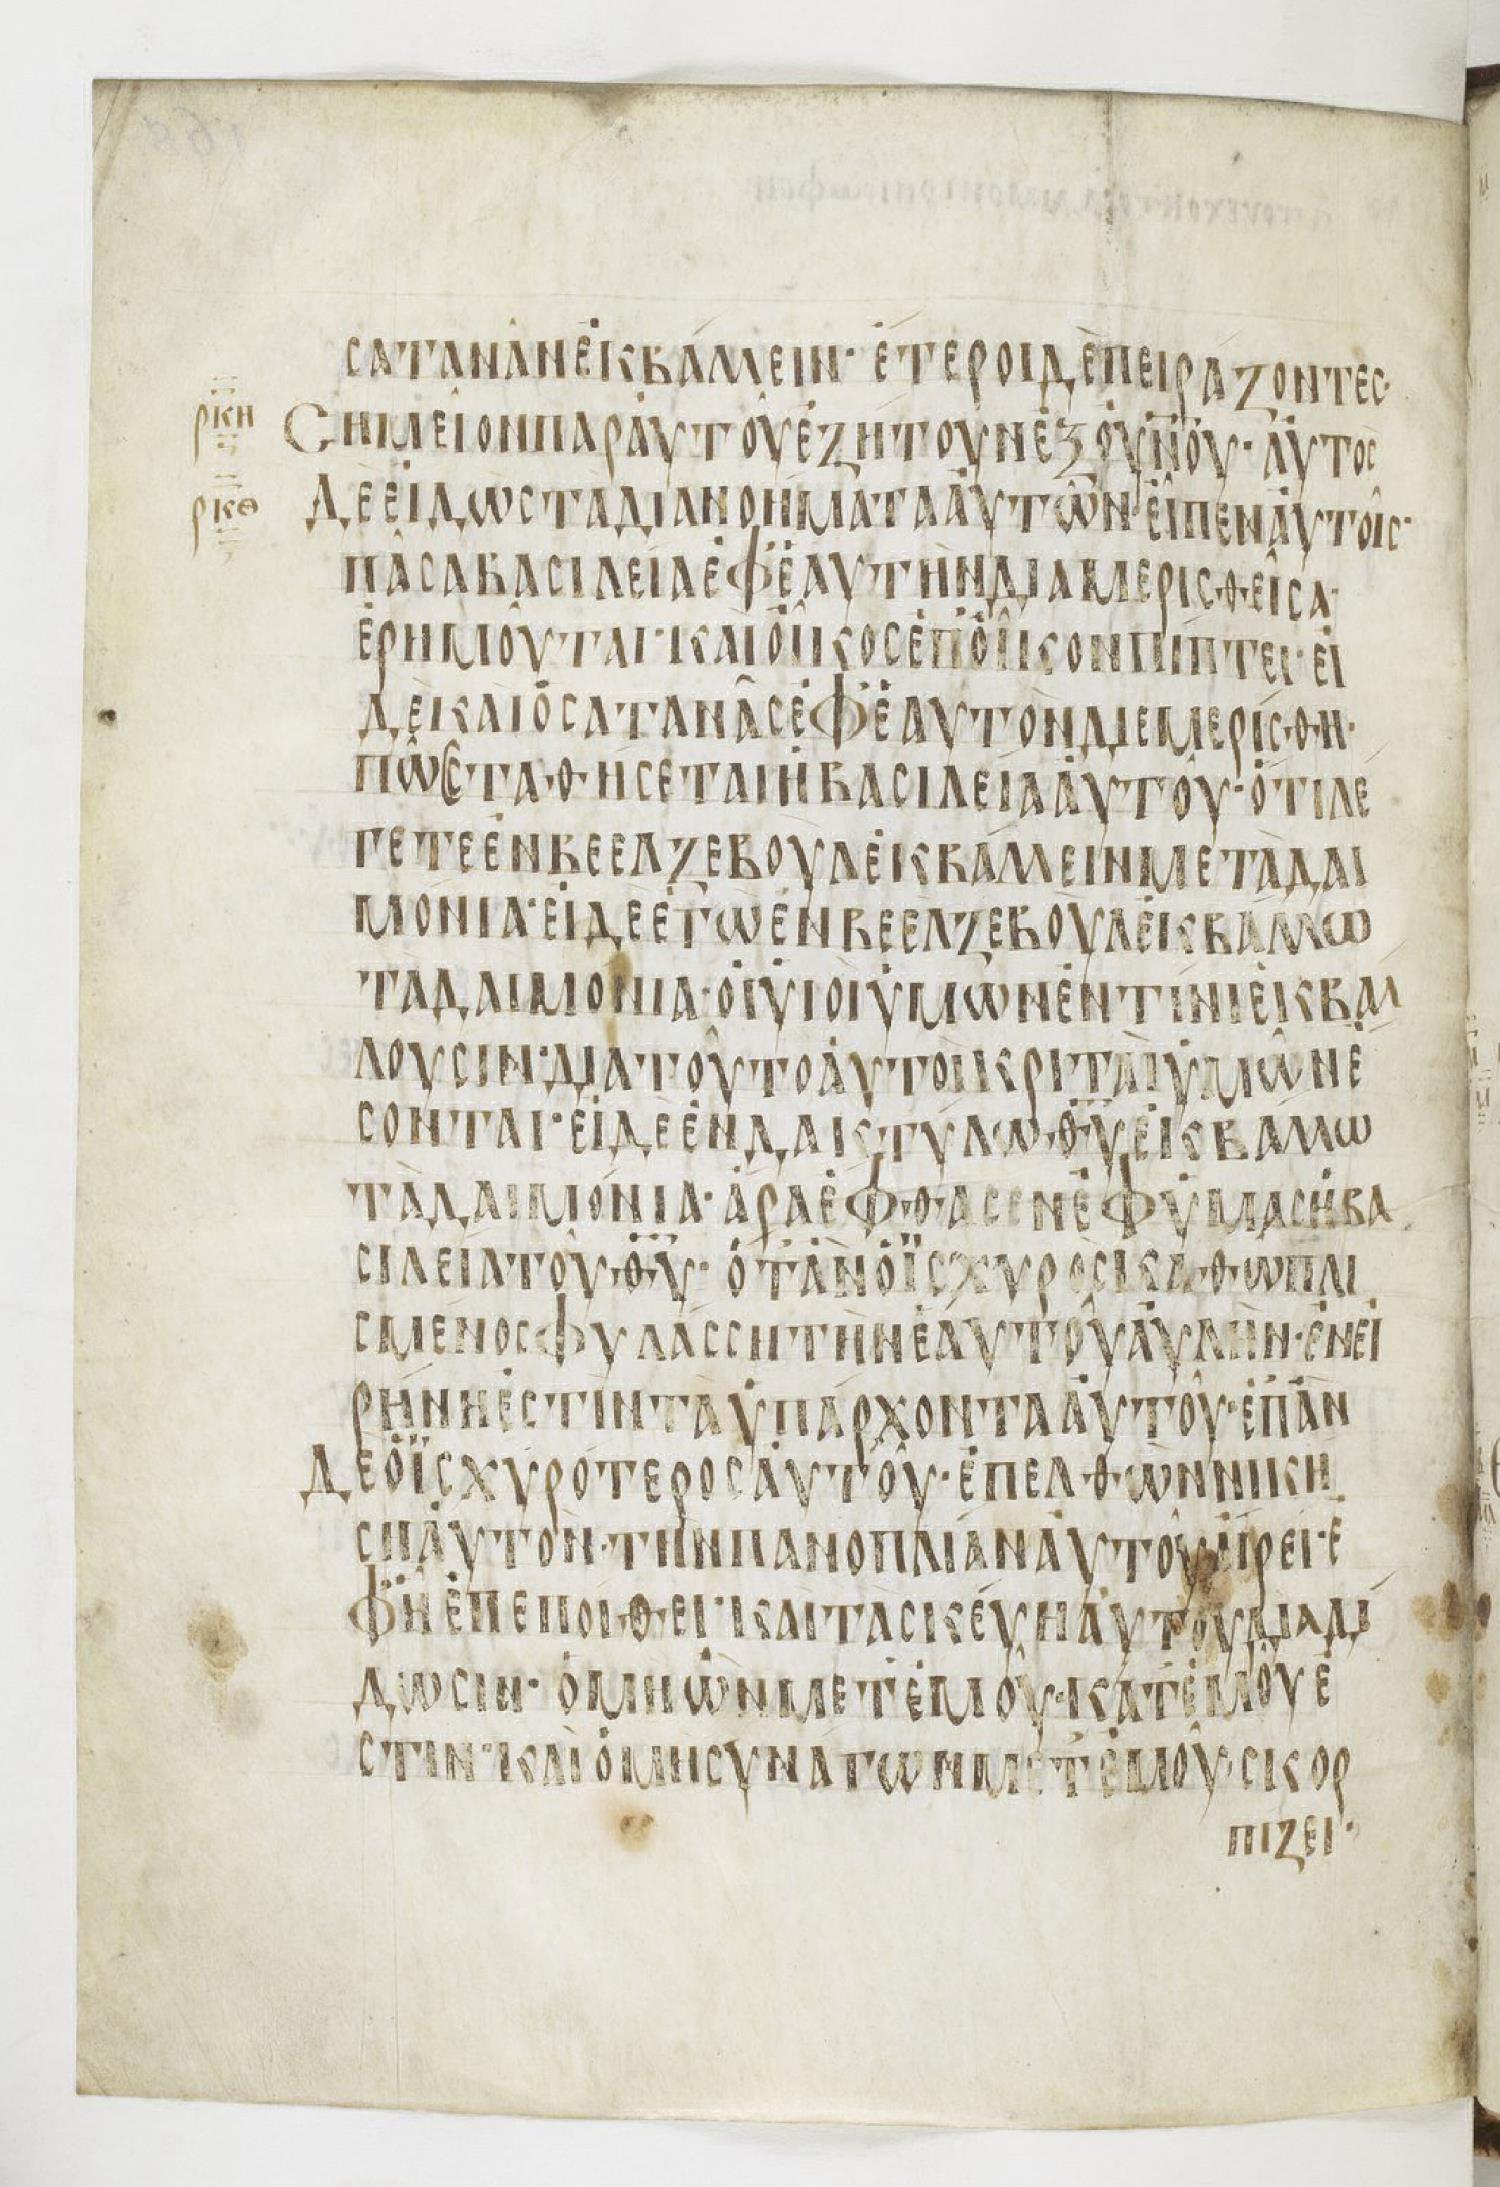 ΣΑΤΑΝΑΝΕΚΒΑΛΛΕΙΝ· ΕΤΕΡΟΙΔΕΠΕΙΡΑΖΟΝΤΕΣ·
ρκη ΣΗΜΕΙΟΝΠΑΡΑΥΤΟΥΕΖΗΤΟΥΝΕΞΟΥΝΟΥ· ΑΥΤΟΣ
ρκθ ΔΕΕΙΔΩΣΤΑΔΙΑΝΟΗΜΑΤΑΑΥΤΩΝ· ΕΙΠΕΝΑΥΤΟΙΣ·
ΠΑΣΑΒΑΣΙΛΕΙΑΕΦΕΑΥΤΗΝΔΙΑΜΕΡΙΣΘΕΙΣΑ·
ΕΡΗΜΟΥΤΑΙ· ΚΑΙΟΙΚΟΣΕΠΟΙΚΟΝΠΙΠΤΕΙ· ΕΙ
ΔΕΚΑΙΟΣΑΤΑΝΑΣΕΦΕΑΥΤΟΝΔΙΕΜΕΡΙΣΘΗ·
ΠΩΣΣΤΑΘΗΣΕΤΑΙΗΒΑΣΙΛΕΙΑΑΥΤΟΥ· ΟΤΙΛΕ
ΓΕΤΕΕΝΒΕΕΛΖΕΒΟΥΛΕΚΒΑΛΛΕΙΝΜΕΤΑΔΑΙ
ΜΟΝΙΑ· ΕΙΔΕΕΓΩΕΝΒΕΕΛΖΕΒΟΥΛΕΚΒΑΛΛΩ
ΤΑΔΑΙΜΟΝΙΑ· ΟΙΥΙΟΙΥΜΩΝΕΝΤΙΝΙΕΚΒΑΛ
ΛΟΥΣΙΝ· ΔΙΑΤΟΥΤΟΑΥΤΟΙΚΡΙΤΑΙΥΜΩΝΕ
ΣΟΝΤΑΙ· ΕΙΔΕΕΝΔΑΚΤΥΛΩΘΥΕΚΒΑΛΛΩ
ΤΑΔΑΙΜΟΝΙΑ· ΑΡΑΕΦΘΑΣΕΝΕΦΥΜΑΣΗΒΑ
ΣΙΛΕΙΑΤΟΥΘΥ· ΟΤΑΝΟΙΣΧΥΡΟΣΚΑΘΩΠΛΙ
ΣΜΕΝΟΣΦΥΛΑΣΣΗΤΗΝΕΑΥΤΟΥΑΥΛΗΝ· ΕΝΕΙ
ΡΗΝΗΕΣΤΙΝΤΑΥΠΑΡΧΟΝΤΑΑΥΤΟΥ· ΕΠΑΝ
ΔΕΟΙΣΧΥΡΟΤΕΡΟΣΑΥΤΟΥ· ΕΠΕΛΘΩΝΝΙΚΗ
ΣΗΑΥΤΟΝ· ΤΗΝΠΑΝΟΠΛΙΑΝΑΥΤΟΥΑΙΡΕΙ· Ε
ΦΗΕΠΕΠΟΙΘΕΙ· ΚΑΙΤΑΣΚΕΥΗΑΥΤΟΥΔΙΑΔΙ
ΔΩΣΙΝ· ΟΜΗΩΝΜΕΤΕΜΟΥ· ΚΑΤΕΜΟΥΕ
ΣΤΙΝ· ΚΑΙΟΜΗΣΥΝΑΓΩΝΜΕΤΕΜΟΥ· ΣΚΟΡ
ΠΙΖΕΙ·